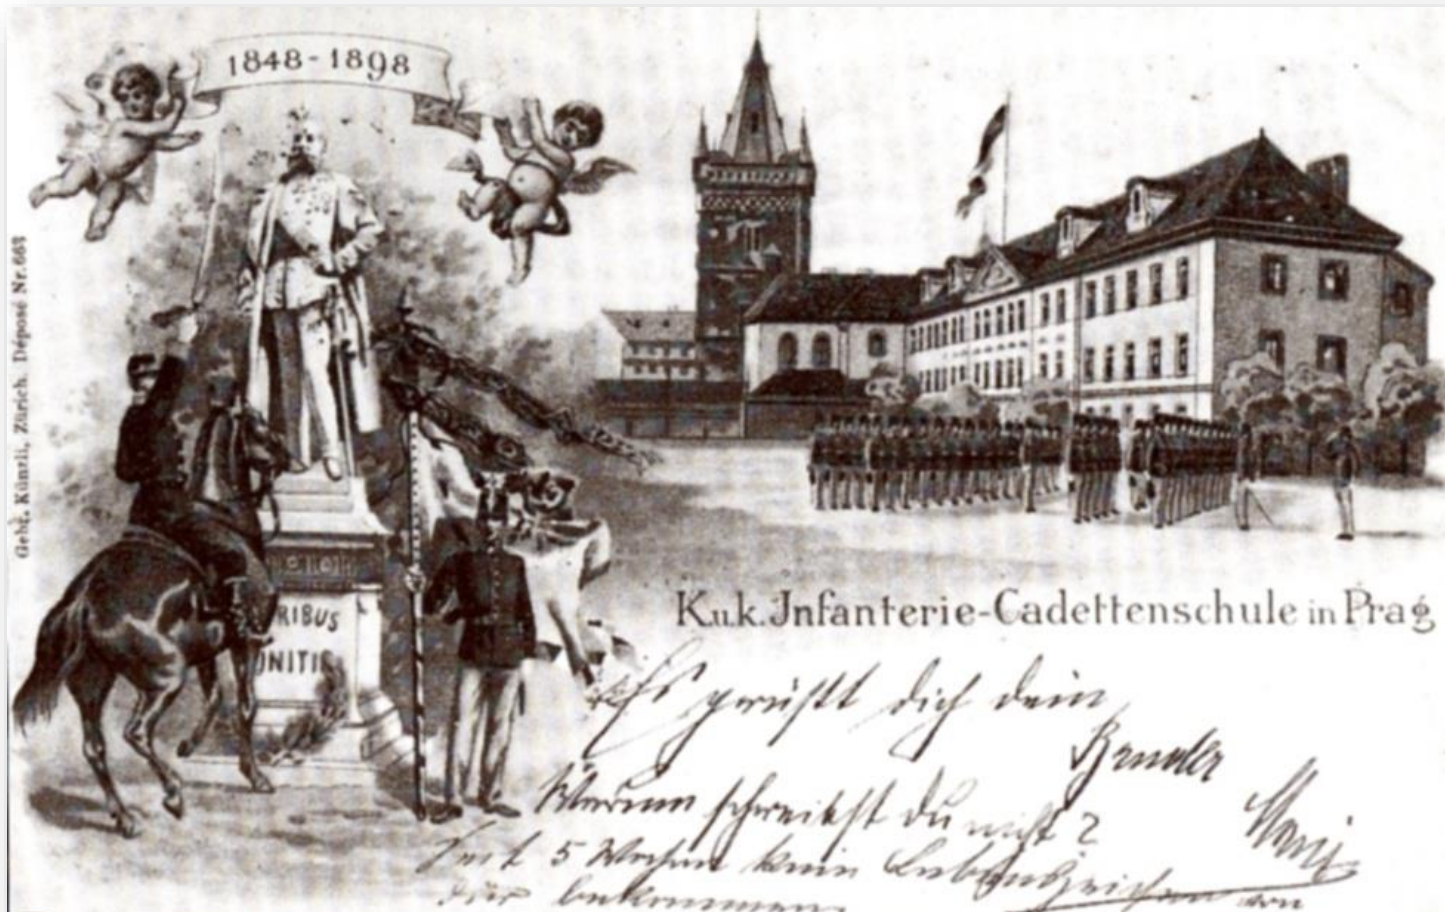 1848-1898
Gebr. Künzli, Zürich. Déposé Nr. 663
RIBUS
UNITIS
K.u.k. Infanterie-Cadettenschule in Prag
Es grüßt dich dein
Bruder
Warum schreibst du nicht?
Seit 5 Wochen kein Lebenszeichen von
dir bekommen